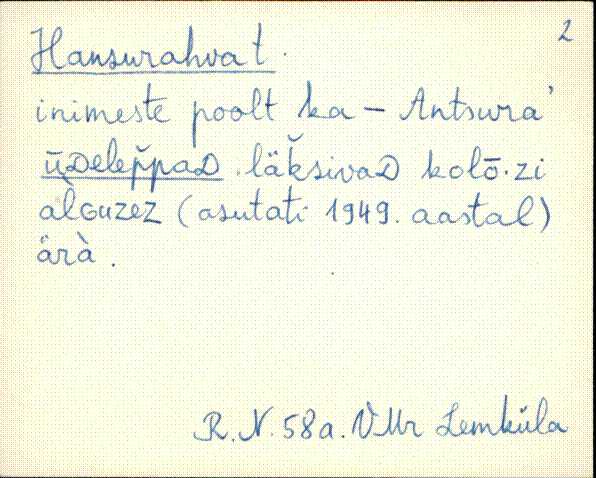 2
Hansurahvat.
inimeste poolt ka – Antsura'
ūᴅelep̆pаᴅ. läk̆sivaᴅ kolō·zi
àlɢuzez (asutati 1949. aastal)
ärà.
R.N. 58a. VMr Lemküla